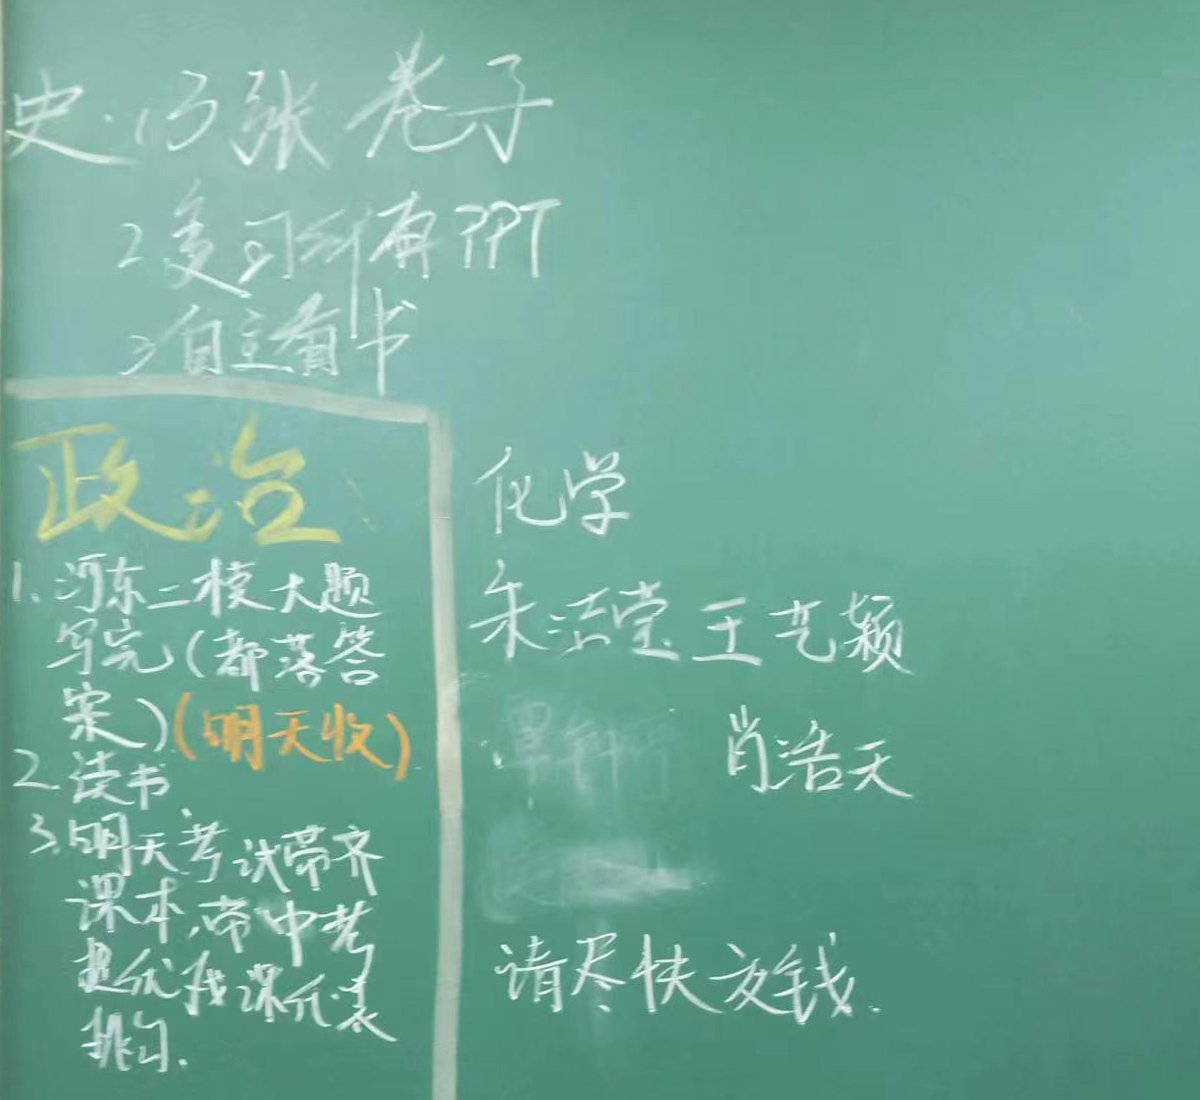 史. 1、3张卷子
2复习所有PPT
3自主看书
政治:
1. 河东二模大题
写完(都落答
案)(明天收)
2. 读书
3. 明天考试带齐
课本,带中考
挑勾.
化学
朱洁莹 王艺颖
肖浩天
请尽快交钱.